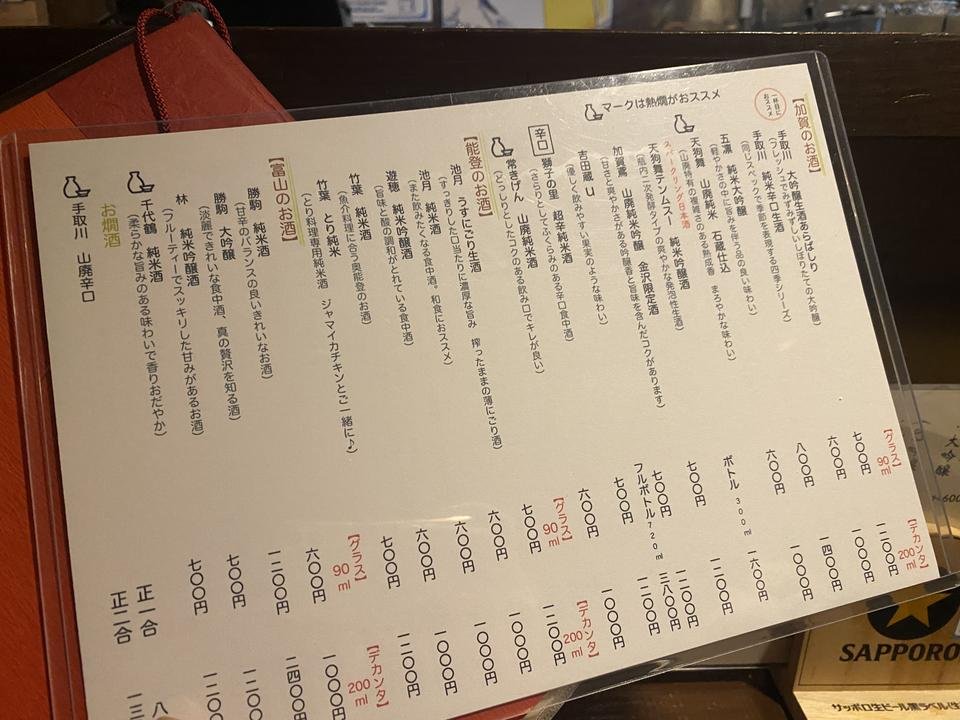 【加賀のお酒】 【グラス】90ml 【デカンタ】200ml
一杯目におススメ
手取川 大吟醸生酒あらばしり 七〇〇円 一二〇〇円
(フレッシュでみずみずしいしぼりたての大吟醸)
手取川 純米辛口生酒 六〇〇円 一〇〇〇円
(同じスペックで季節を表現する四季シリーズ)
五凛 純米大吟醸 八〇〇円 一四〇〇円
(軽やかさの中に旨みを伴う品の良い味わい)
天狗舞 山廃純米 石蔵仕込 六〇〇円 一〇〇〇円
(山廃特有の複雑さのある熟成香 まろやかな味わい)
マークは熱燗がおススメ
スパークリング日本酒
天狗舞テンムスー 純米吟醸酒 ボトル 300ml 一六〇〇円
(瓶内二次発酵タイプの爽やかな発泡性生酒)
加賀鳶 山廃純米吟醸 金沢限定酒 七〇〇円 一二〇〇円
(甘さと爽やかさがある吟醸香と旨味を含んだコクがあります)
吉田蔵u 七〇〇円 一二〇〇円
フルボトル720ml 三八〇〇円
(優しく飲みやすい果実のような味わい)
辛口 獅子の里 超辛純米酒 七〇〇円 一二〇〇円
(さらりとしてふくらみのある辛口食中酒)
常きげん 山廃純米酒 六〇〇円 一〇〇〇円
(どっしりとしたコクのある飲み口でキレが良い)
【能登のお酒】 【グラス】90ml 【デカンタ】200ml
池月 うすにごり生酒 七〇〇円 一二〇〇円
(すっきりした口当たりに濃厚な旨み 搾ったままの薄にごり酒)
池月 純米酒 六〇〇円 一〇〇〇円
(また飲みたくなる食中酒。和食におススメ)
遊穂 純米吟醸酒 六〇〇円 一〇〇〇円
(旨味と酸の調和がとれている食中酒)
竹葉 純米酒 六〇〇円 一〇〇〇円
(魚介料理に合う奥能登のお酒)
竹葉 とり純米 七〇〇円 一二〇〇円
(とり料理専用純米酒 ジャマイカチキンとご一緒に♪)
【富山のお酒】 【グラス】90ml 【デカンタ】200ml
勝駒 純米酒 六〇〇円 一〇〇〇円
(甘辛のバランスの良いきれいなお酒)
勝駒 大吟醸 一二〇〇円 二四〇〇円
(淡麗できれいな食中酒、真の贅沢を知る酒)
林 純米吟醸酒 七〇〇円 一二〇〇
(フルーティーでスッキリした甘みがあるお酒)
千代鶴 純米酒 七〇〇円 一二〇〇
(柔らかな旨みのある味わいで香りおだやか)
お燗酒
手取川 山廃辛口 正一合 八
正二合 一三
SAPPORO
サッポロ生ビール黒ラベル(生